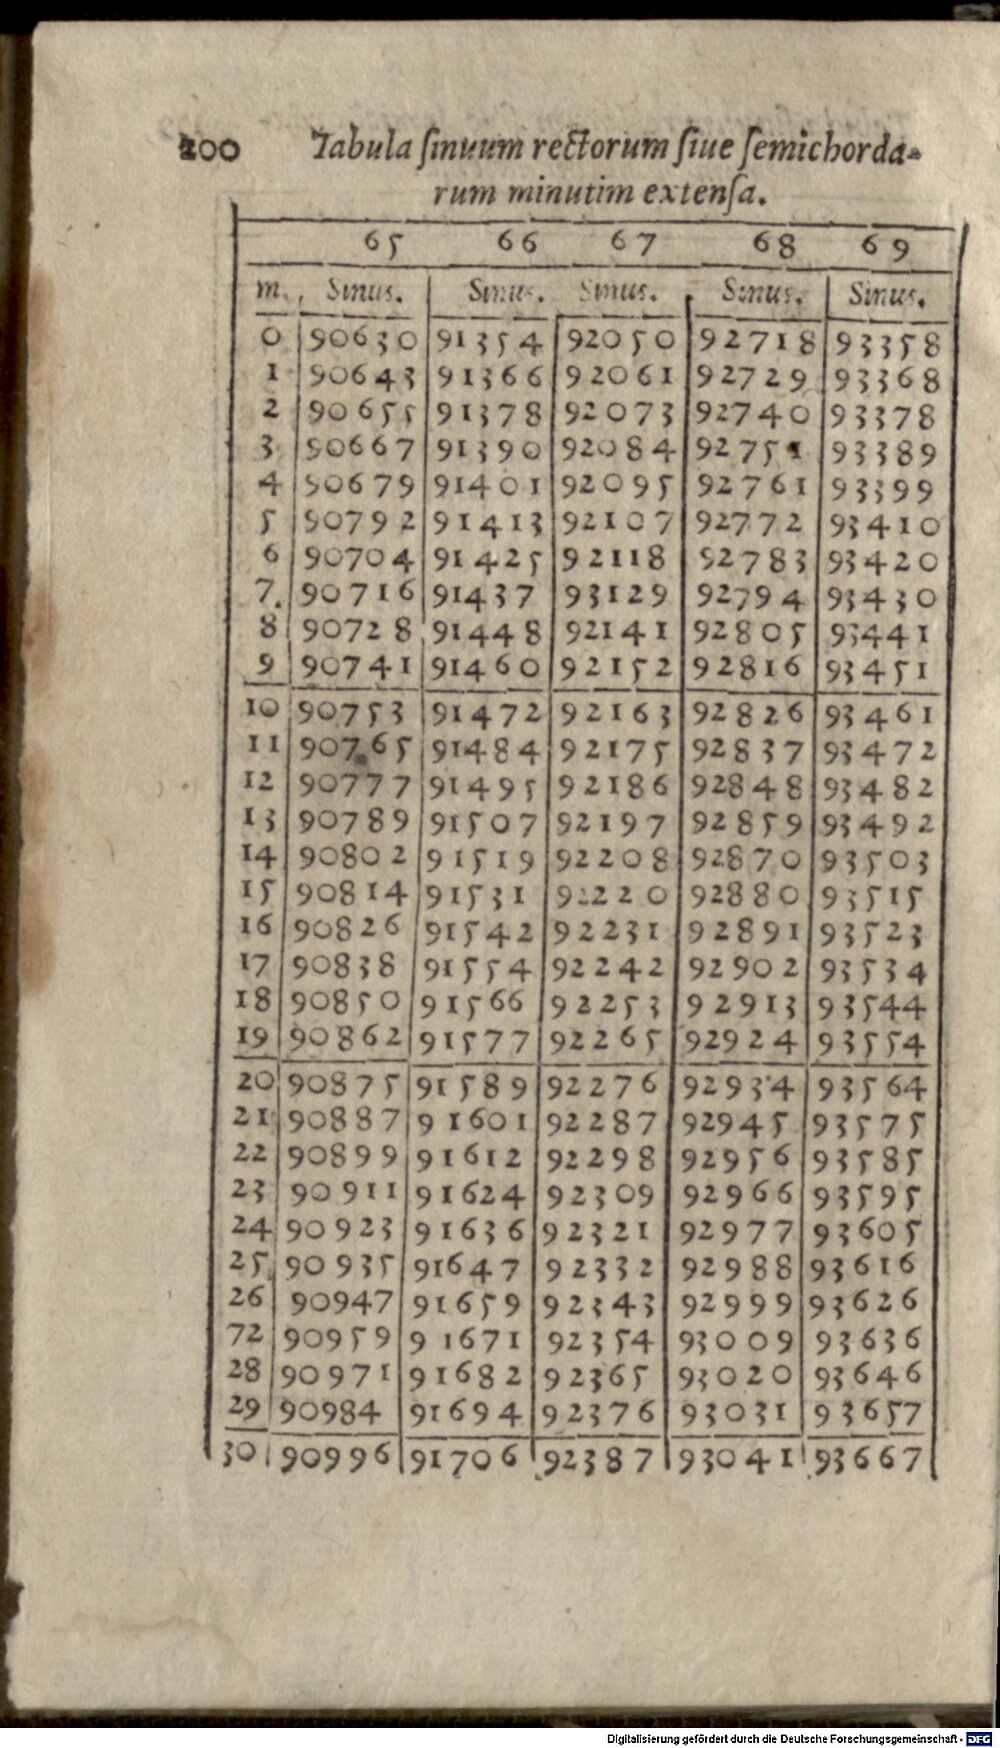 200 Tabula ſinuum rectorum ſiue ſemichorda-
rum minutim extenſa.
65 66 67 68 69
m. Sinus. Sinus. Sinus. Sinus. Sinus.
0 90630 91354 92050 92718 93358
1 90643 91366 92061 92729 93368
2 90655 91378 92073 92740 93378
3 90667 91390 92084 92751 93389
4 90679 91401 92095 92761 93399
5 90792 91413 92107 92772 93410
6 90704 91425 92118 92783 93420
7. 90716 91437 93129 92794 93430
8 90728 91448 92141 92805 93441
9 90741 91460 92152 92816 93451
10 90753 91472 92163 92826 93461
11 90765 91484 92175 92837 93472
12 90777 91495 92186 92848 93482
13 90789 91507 92197 92859 93492
14 90802 91519 92208 92870 93503
15 90814 91531 92220 92880 93515
16 90826 91542 92231 92891 93523
17 90838 91554 92242 92902 93534
18 90850 91566 92253 92913 93544
19 90862 91577 92265 92924 93554
20 90875 91589 92276 92934 93564
21 90887 91601 92287 92945 93575
22 90899 91612 92298 92956 93585
23 90911 91624 92309 92966 93595
24 90923 91636 92321 92977 93605
25 90935 91647 92332 92988 93616
26 90947 91659 92343 92999 93626
72 90959 91671 92354 93009 93636
28 90971 91682 92365 93020 93646
29 90984 91694 92376 93031 93657
30 90996 91706 92387 93041 93667
Digitalisierung gefördert durch die Deutsche Forschungsgemeinschaft - DFG